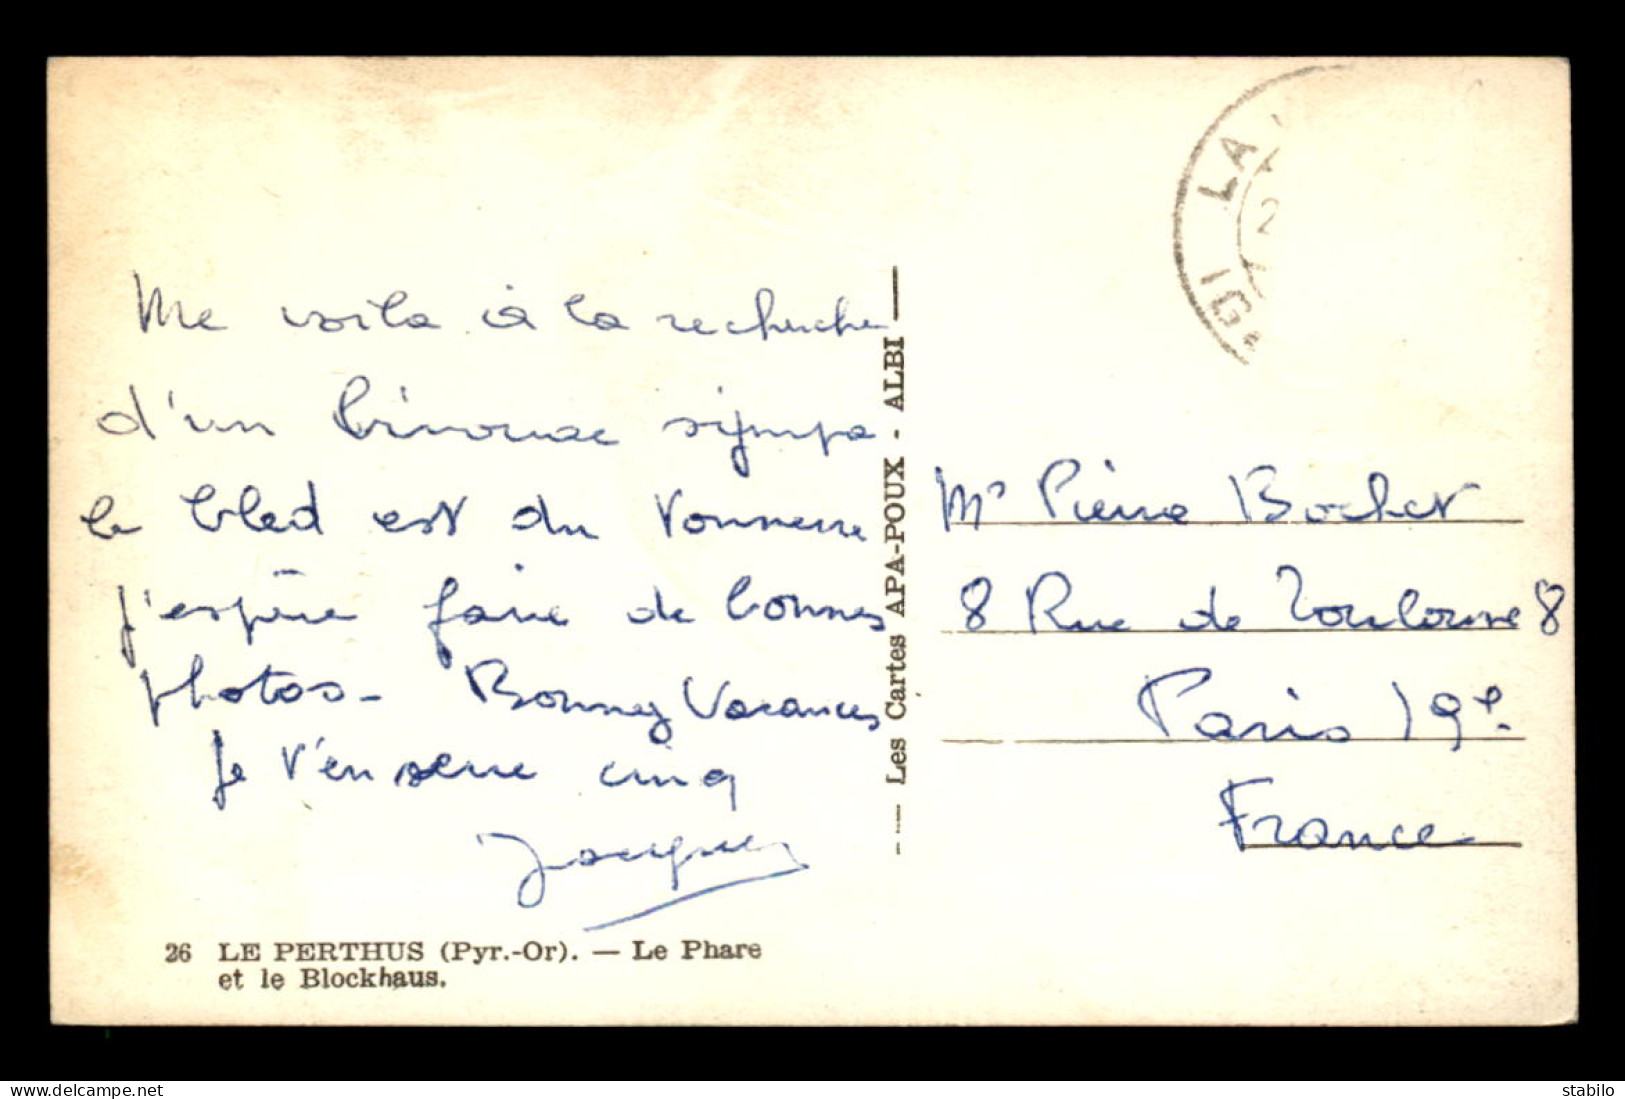 Me voila à la recherche
d'un binouze sympa
le bled est du tonnerre
j'espère faire de bonnes
photos - Bonnes Vacances
Je t'en serre cinq
Jacques
26 LE PERTHUS (Pyr.-Or). — Le Phare
et le Blockhaus.
Les Cartes APA-POUX - ALBI
LA
2
IG
Mr Pierre Bochet
8 Rue de Toulouse 8
Paris 19e
France
https://www.delcampe.net
stabilo